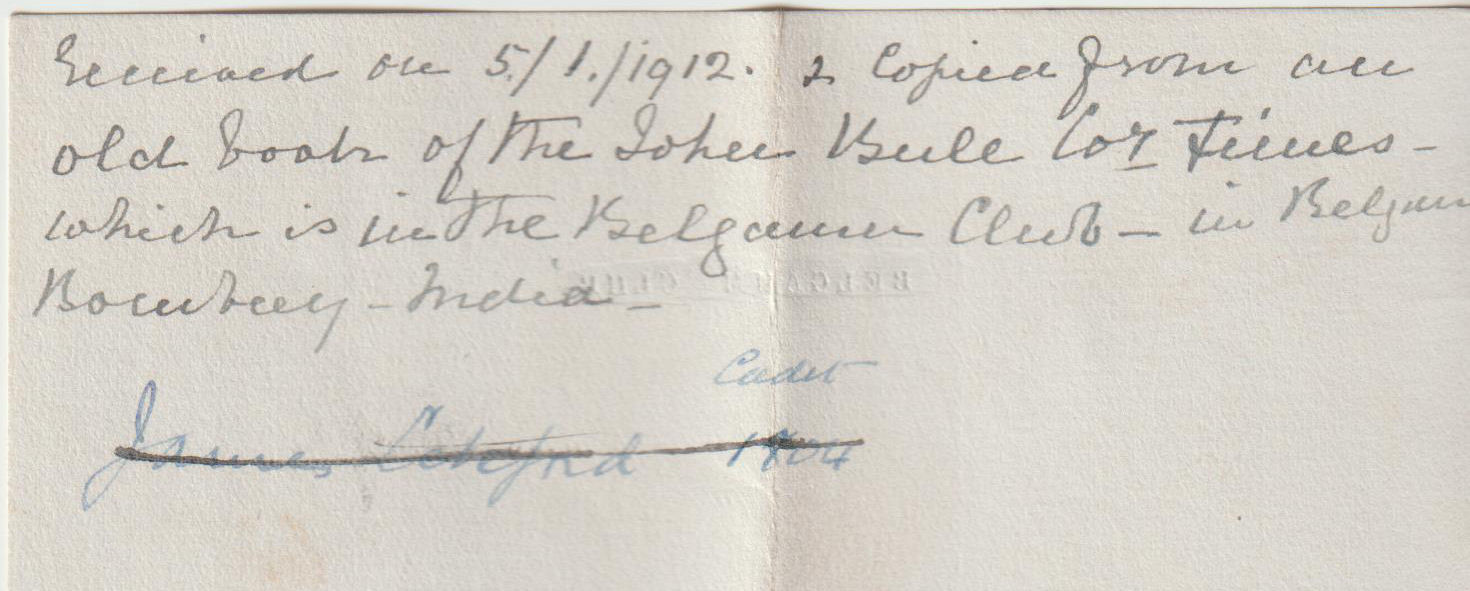 Received on 5/1./1912. & Copied from an
old book of the John Bull
which is in the Belgaum Club – in Belgaum
Bombay – India –
BELGAUM CLUB
Cadet
James